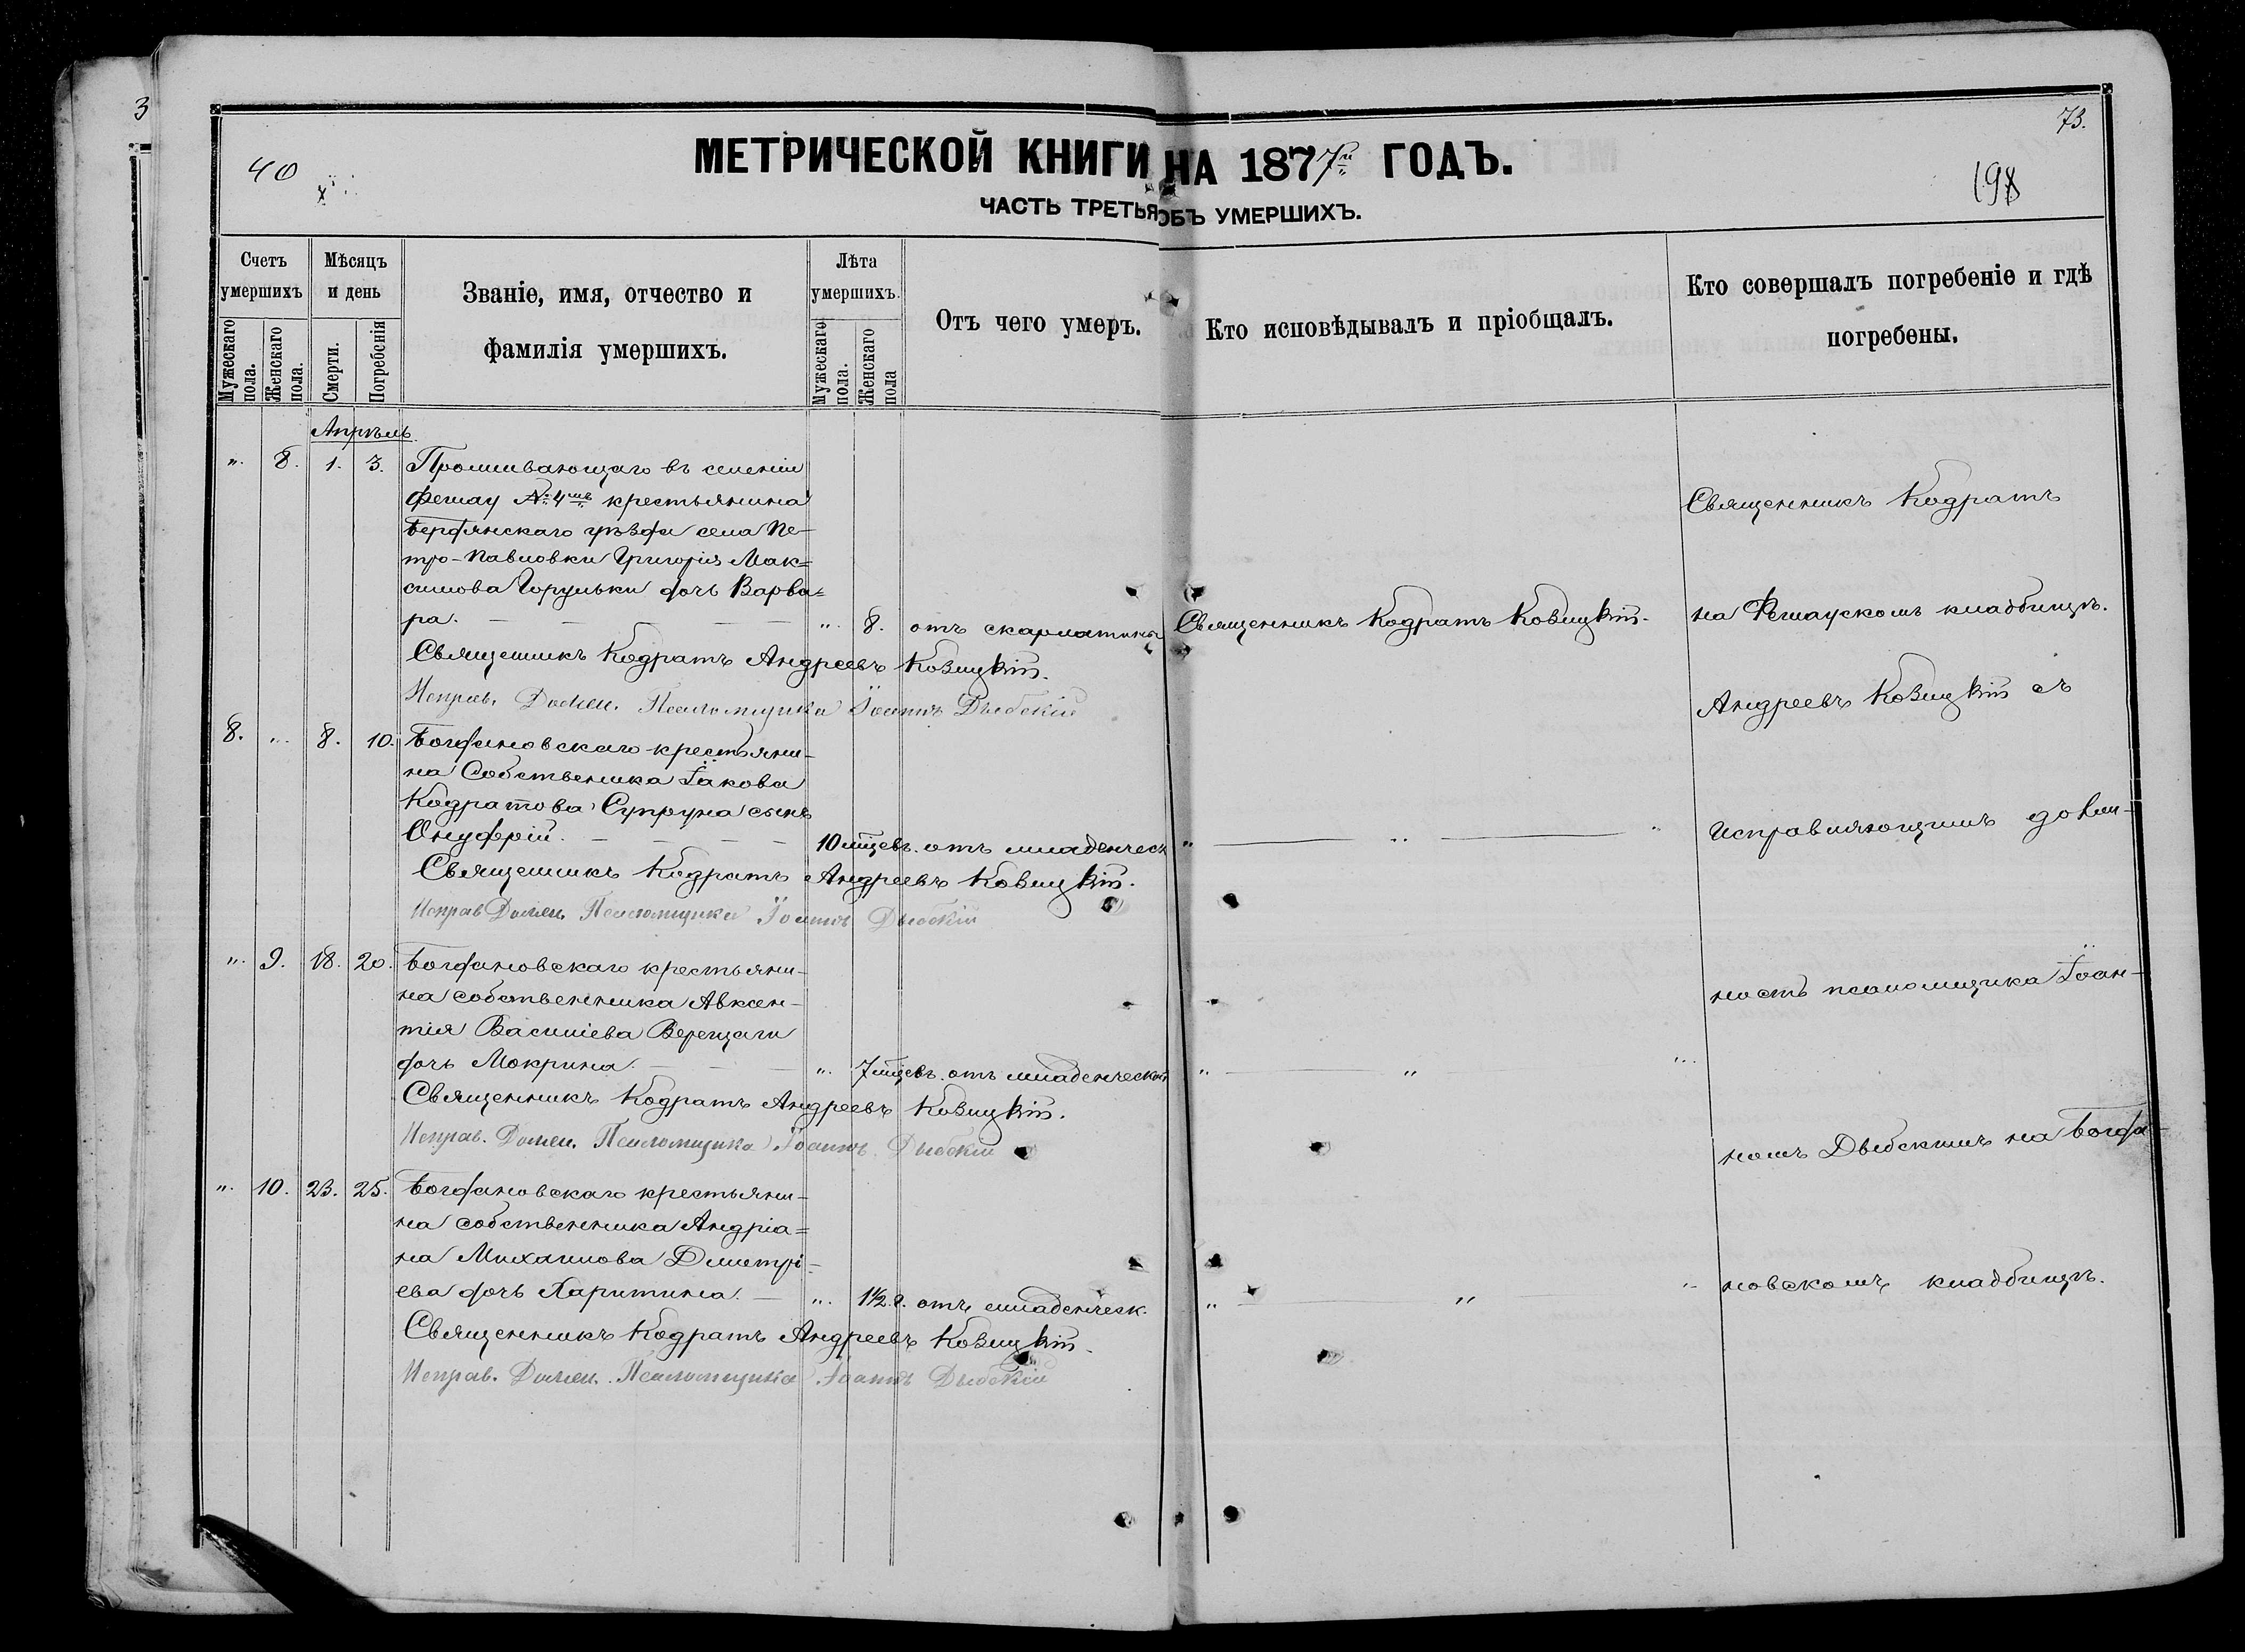 3
73.
40
198
МЕТРИЧЕСКОЙ КНИГИ НА 1877й ГОДЪ.
ЧАСТЬ ТРЕТЬЯ ОБЪ УМЕРШИХЪ.
Счетъ умершихъ
Мужескаго пола.
Женскаго пола.
Мѣсяцъ и день
Смерти.
Погребенія
Званіе, имя, отчество и
фамилія умершихъ.
Лѣта умершихъ.
Мужескаго пола.
Женскаго пола
Отъ чего умеръ.
Кто исповѣдывалъ и пріобщалъ.
Кто совершалъ погребеніе и гдѣ
погребены.
Апрѣль
„ 8. 1. 3. Проживающаго въ селеніи
Фешау № 4мъ крестьянина
Бердянскаго уѣзда села Пе-
тро-Павловки Григорія Мак=
симова Горульки дочь Варва=
ра. — „ 8. отъ скарлатины Священникъ Кодратъ Ковицкій.
Священникъ Кодратъ Андреевъ Ковицкій.
Исправ. Должн. Псаломщика Іоаннъ Дыбскій
8. „ 8. 10. Богдановскаго крестьяни-
на Собственика Іакова
Кодратова Супруна сынъ
Онуфрій. — 10 мцевъ. отъ младенческ „ — „ — „
Священникъ Кодратъ Андреевъ Ковицкій.
Исправ Должн. Псаломщика Іоаннъ Дыбскій
„ 9. 18. 20. Богдановскаго крестьяни-
на собственника Авксен-
тія Василіева Верещаги
дочь Мокрина. — „ 7 мцевъ. отъ младенческой „ — „ — „
Священникъ Кодратъ Андреевъ Ковицкій.
Исправ. Должн. Псаломщика Іоаннъ Дыбскій
„ 10. 23. 25. Богдановскаго крестьяни-
на собственника Андріа=
на Михаилова Дмитрі-
ева дочь Харитина. — „ 1½ г. отъ младенческ. „ — „ — „
Священникъ Кодратъ Андреевъ Ковицкій.
Исправ. Должн. Псаломщика Іоаннъ Дыбскій
Священникъ Кодратъ
на Фешаускомъ кладбищѣ.
Андреевъ Ковицкій съ
исправляющимъ долж-
ность псаломщика Іоан-
номъ Дыбскимъ на Богда-
новскомъ кладбищѣ.